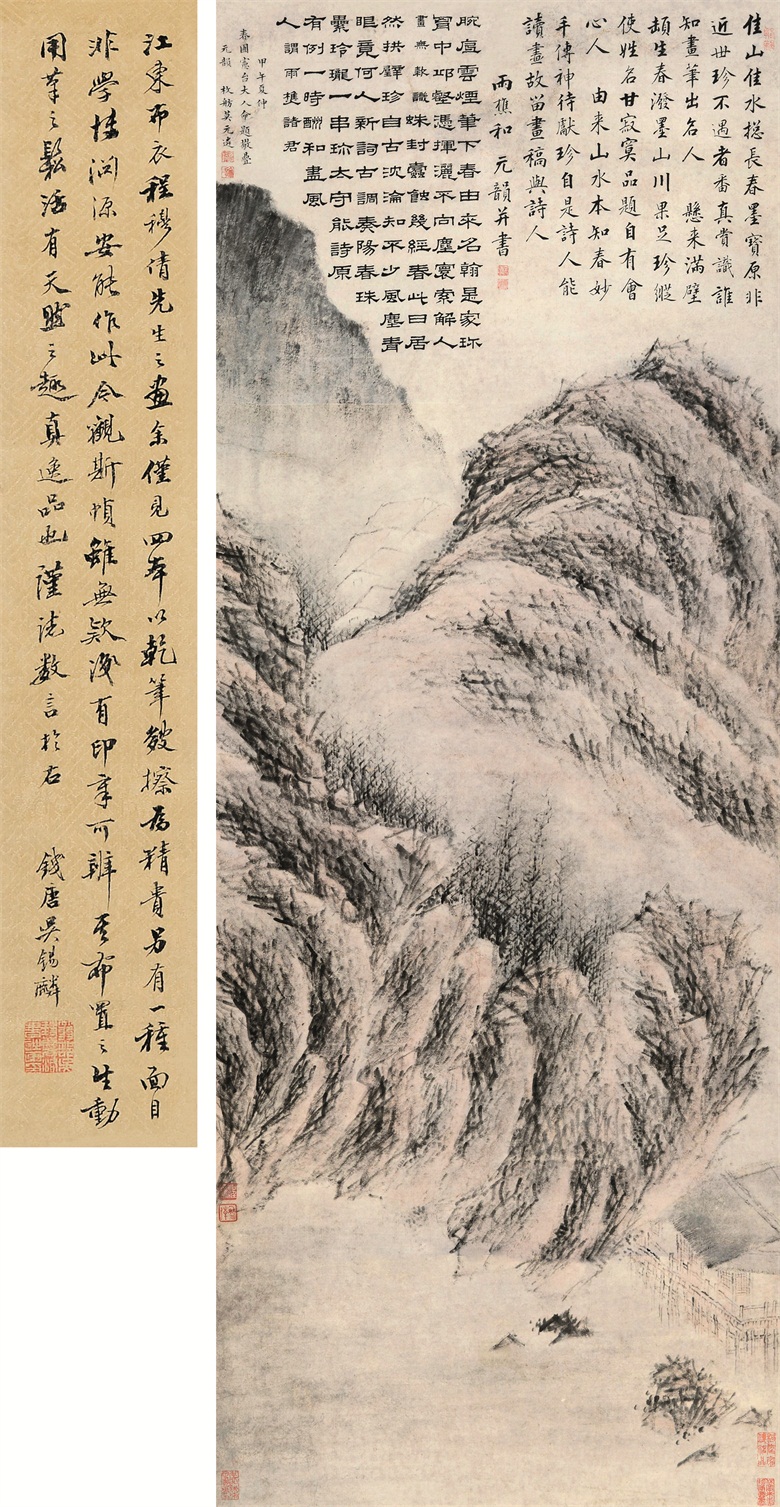 江東布衣程穆倩先生之畫余僅見四本以乾筆皴擦為精貴另有一種面目
非學博淵源安能作此今觀斯幀雖無款識有印章可辨其布置之生動
用筆之鬆活有天然之趣真逸品也謹誌數言於右 錢唐吳錫麟
佳山佳水摠長春墨寶原非
近世珍不遇耆番真賞識誰
知畫筆出名人 懸來滿壁
頡生春潑墨山川果足珍縱
使姓名甘寂寞品題自有會
心人 由來山水本知春妙
手傳神待獻珍自是詩人能
讀畫故留畫稿與詩人
雨樵和元韻并書
腕底雲煙筆下春由來名翰是家珎
胷中邱壑憑揮灑不向塵寰索解人
畫無款識蛛封蠧蝕幾經春此日居
然拱璧珍自古沈淪知不少風塵青
眼竟何人新詞古調奏陽春珠
纍玲瓏一串珎太守能詩原
有例一時酬和盡風
人謂雨樵諸君
甲午夏仲
春圃憲台大人命題敬疊
元韻 枚舫莫元遴